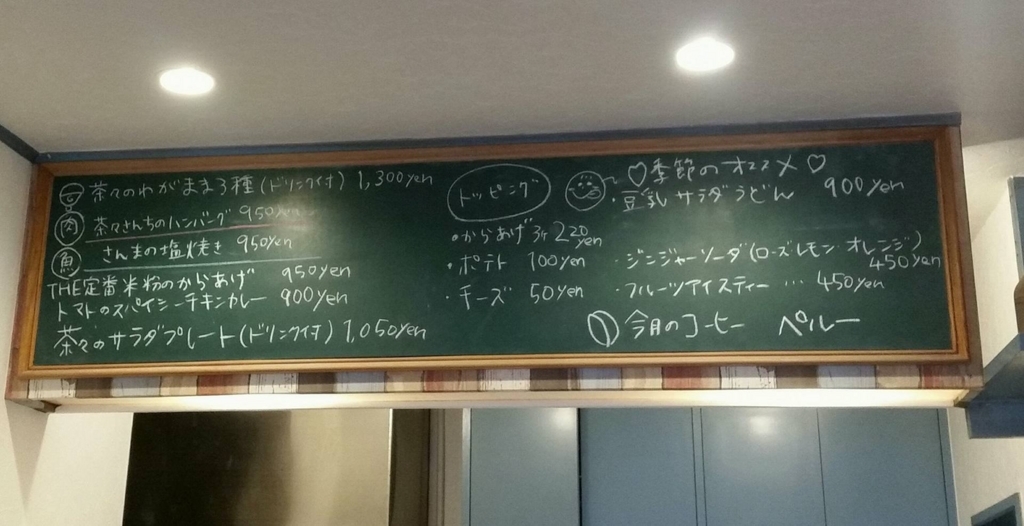 茶々のわがまま3種(ドリンク付) 1,300yen
肉 茶々さんちのハンバーグ 950yen
魚 さんまの塩焼き 950yen
THE定番米粉のからあげ 950yen
トマトのスパイシーチキンカレー 900yen
茶々のサラダプレート(ドリンク付) 1,050yen
トッピング
・からあげ3ケ 220yen
・ポテト 100yen
・チーズ 50yen
♡季節のオススメ♡
・豆乳サラダうどん 900yen
・ジンジャーソーダ(ローズレモン・オレンジ) 450yen
・フルーツアイスティー … 450yen
今月のコーヒー ペルー